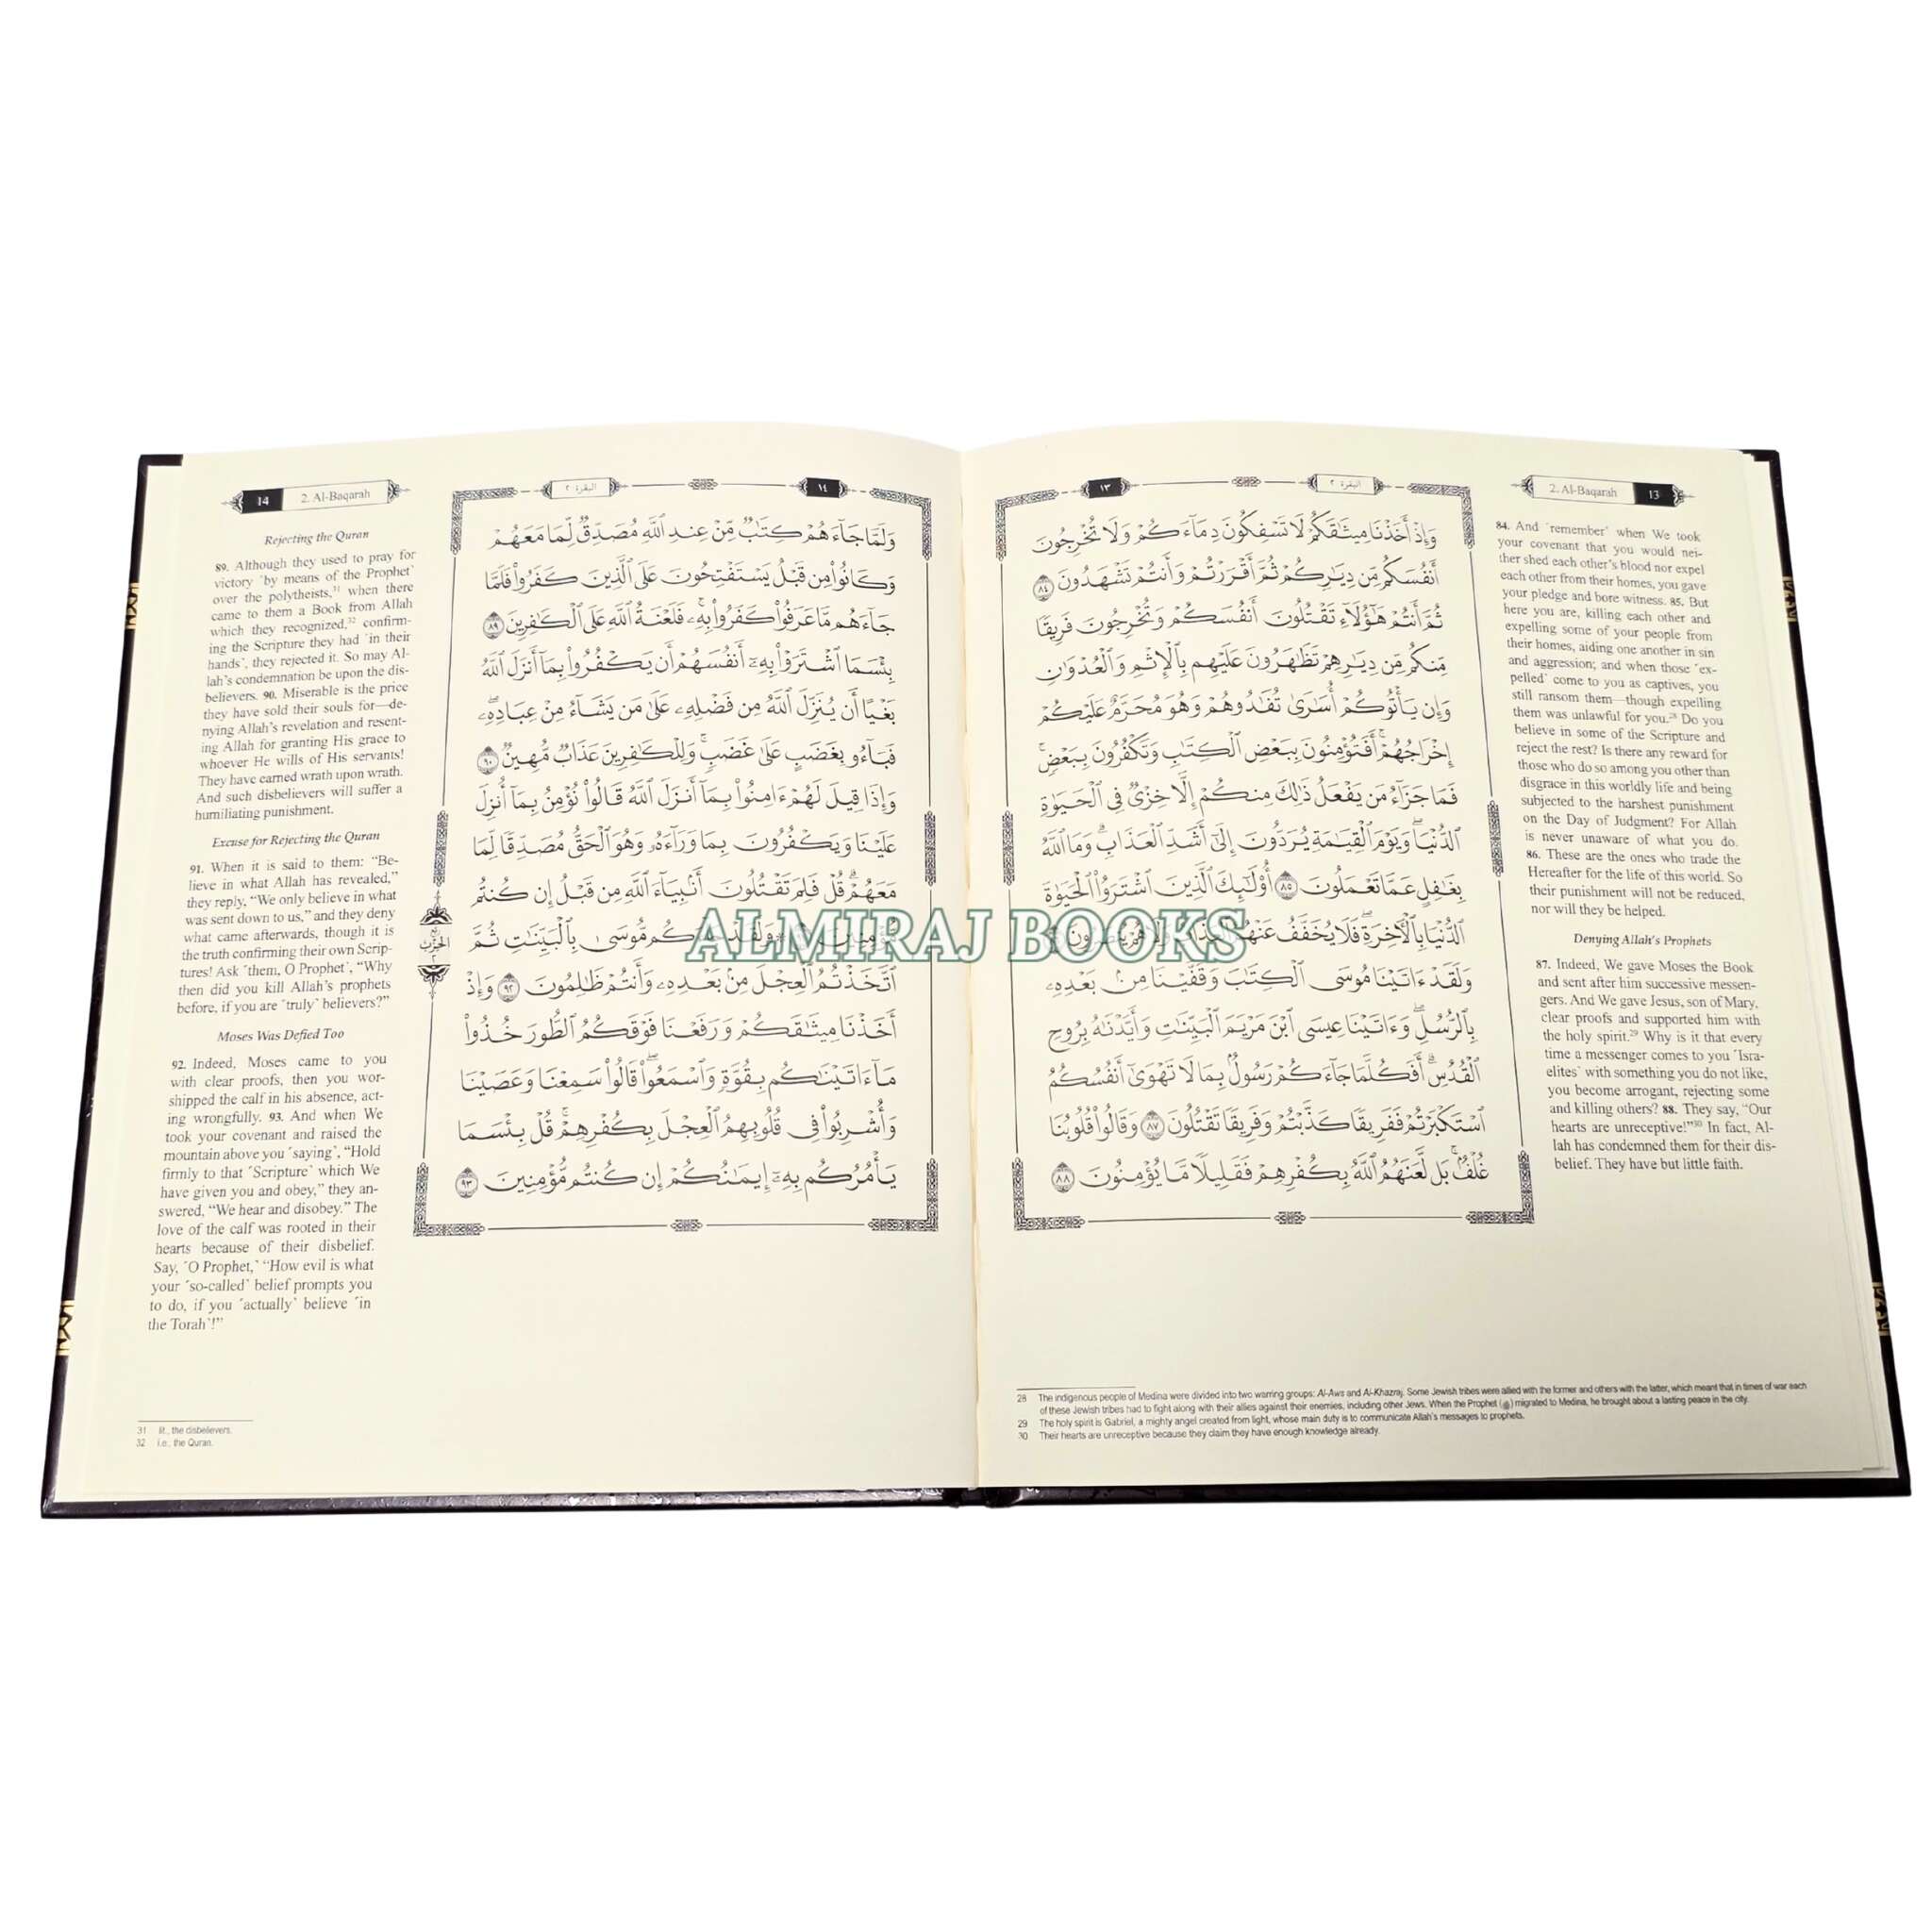 13
2. Al-Baqarah
البقرة ٢
١٣
84. And ˹remember˺ when We took
your covenant that you would nei-
ther shed each other's blood nor expel
each other from their homes, you gave
your pledge and bore witness. 85. But
here you are, killing each other and
expelling some of your people from
their homes, aiding one another in sin
and aggression; and when those ˹ex-
pelled˺ come to you as captives, you
still ransom them—though expelling
them was unlawful for you.²⁸ Do you
believe in some of the Scripture and
reject the rest? Is there any reward for
those who do so among you other than
disgrace in this worldly life and being
subjected to the harshest punishment
on the Day of Judgment? For Allah
is never unaware of what you do.
86. These are the ones who trade the
Hereafter for the life of this world. So
their punishment will not be reduced,
nor will they be helped.
Denying Allah's Prophets
87. Indeed, We gave Moses the Book
and sent after him successive messen-
gers. And We gave Jesus, son of Mary,
clear proofs and supported him with
the holy spirit.²⁹ Why is it that every
time a messenger comes to you ˹Isra-
elites˺ with something you do not like,
you become arrogant, rejecting some
and killing others? 88. They say, "Our
hearts are unreceptive!"³⁰ In fact, Al-
lah has condemned them for their dis-
belief. They have but little faith.
وَإِذْ أَخَذْنَا مِيثَٰقَكُمْ لَا تَسْفِكُونَ دِمَآءَكُمْ وَلَا تُخْرِجُونَ
أَنفُسَكُم مِّن دِيَٰرِكُمْ ثُمَّ أَقْرَرْتُمْ وَأَنتُمْ تَشْهَدُونَ ٨٤
ثُمَّ أَنتُمْ هَٰٓؤُلَآءِ تَقْتُلُونَ أَنفُسَكُمْ وَتُخْرِجُونَ فَرِيقًا
مِّنكُم مِّن دِيَٰرِهِمْ تَظَٰهَرُونَ عَلَيْهِم بِٱلْإِثْمِ وَٱلْعُدْوَٰنِ
وَإِن يَأْتُوكُمْ أُسَٰرَىٰ تُفَٰدُوهُمْ وَهُوَ مُحَرَّمٌ عَلَيْكُمْ
إِخْرَاجُهُمْ ۚ أَفَتُؤْمِنُونَ بِبَعْضِ ٱلْكِتَٰبِ وَتَكْفُرُونَ بِبَعْضٍ ۚ
فَمَا جَزَآءُ مَن يَفْعَلُ ذَٰلِكَ مِنكُمْ إِلَّا خِزْىٌ فِى ٱلْحَيَوٰةِ
ٱلدُّنْيَا ۖ وَيَوْمَ ٱلْقِيَٰمَةِ يُرَدُّونَ إِلَىٰٓ أَشَدِّ ٱلْعَذَابِ ۗ وَمَا ٱللَّهُ
بِغَٰفِلٍ عَمَّا تَعْمَلُونَ ٨٥ أُو۟لَٰٓئِكَ ٱلَّذِينَ ٱشْتَرَوُا۟ ٱلْحَيَوٰةَ
ٱلدُّنْيَا بِٱلْءَاخِرَةِ ۖ فَلَا يُخَفَّفُ عَنْهُمُ
وَلَقَدْ ءَاتَيْنَا مُوسَى ٱلْكِتَٰبَ وَقَفَّيْنَا مِنۢ بَعْدِهِۦ
بِٱلرُّسُلِ ۖ وَءَاتَيْنَا عِيسَى ٱبْنَ مَرْيَمَ ٱلْبَيِّنَٰتِ وَأَيَّدْنَٰهُ بِرُوحِ
ٱلْقُدُسِ ۗ أَفَكُلَّمَا جَآءَكُمْ رَسُولٌۢ بِمَا لَا تَهْوَىٰٓ أَنفُسُكُمُ
ٱسْتَكْبَرْتُمْ فَفَرِيقًا كَذَّبْتُمْ وَفَرِيقًا تَقْتُلُونَ ٨٧ وَقَالُوا۟ قُلُوبُنَا
غُلْفٌۢ ۚ بَل لَّعَنَهُمُ ٱللَّهُ بِكُفْرِهِمْ فَقَلِيلًا مَّا يُؤْمِنُونَ ٨٨
28 The indigenous people of Medina were divided into two warring groups: Al-Aws and Al-Khazraj. Some Jewish tribes were allied with the former and others with the latter, which meant that in times of war each
of these Jewish tribes had to fight along with their allies against their enemies, including other Jews. When the Prophet (ﷺ) migrated to Medina, he brought about a lasting peace in the city.
29 The holy spirit is Gabriel, a mighty angel created from light, whose main duty is to communicate Allah's messages to prophets.
30 Their hearts are unreceptive because they claim they have enough knowledge already.
14
2. Al-Baqarah
البقرة ٢
١٤
Rejecting the Quran
89. Although they used to pray for
victory ˹by means of the Prophet˺
over the polytheists,³¹ when there
came to them a Book from Allah
which they recognized,³² confirm-
ing the Scripture they had ˹in their
hands˺, they rejected it. So may Al-
lah's condemnation be upon the dis-
believers. 90. Miserable is the price
they have sold their souls for—de-
nying Allah's revelation and resent-
ing Allah for granting His grace to
whoever He wills of His servants!
They have earned wrath upon wrath.
And such disbelievers will suffer a
humiliating punishment.
Excuse for Rejecting the Quran
91. When it is said to them: "Be-
lieve in what Allah has revealed,"
they reply, "We only believe in what
was sent down to us," and they deny
what came afterwards, though it is
the truth confirming their own Scrip-
tures! Ask ˹them, O Prophet˺, "Why
then did you kill Allah's prophets
before, if you are ˹truly˺ believers?"
Moses Was Defied Too
92. Indeed, Moses came to you
with clear proofs, then you wor-
shipped the calf in his absence, act-
ing wrongfully. 93. And when We
took your covenant and raised the
mountain above you ˹saying˺, "Hold
firmly to that ˹Scripture˺ which We
have given you and obey," they an-
swered, "We hear and disobey." The
love of the calf was rooted in their
hearts because of their disbelief.
Say, ˹O Prophet,˺ "How evil is what
your ˹so-called˺ belief prompts you
to do, if you ˹actually˺ believe ˹in
the Torah˺!"
وَلَمَّا جَآءَهُمْ كِتَٰبٌ مِّنْ عِندِ ٱللَّهِ مُصَدِّقٌ لِّمَا مَعَهُمْ
وَكَانُوا۟ مِن قَبْلُ يَسْتَفْتِحُونَ عَلَى ٱلَّذِينَ كَفَرُوا۟ فَلَمَّا
جَآءَهُم مَّا عَرَفُوا۟ كَفَرُوا۟ بِهِۦ ۚ فَلَعْنَةُ ٱللَّهِ عَلَى ٱلْكَٰفِرِينَ ٨٩
بِئْسَمَا ٱشْتَرَوْا۟ بِهِۦٓ أَنفُسَهُمْ أَن يَكْفُرُوا۟ بِمَآ أَنزَلَ ٱللَّهُ
بَغْيًا أَن يُنَزِّلَ ٱللَّهُ مِن فَضْلِهِۦ عَلَىٰ مَن يَشَآءُ مِنْ عِبَادِهِۦ ۖ
فَبَآءُو بِغَضَبٍ عَلَىٰ غَضَبٍ ۚ وَلِلْكَٰفِرِينَ عَذَابٌ مُّهِينٌ ٩٠
وَإِذَا قِيلَ لَهُمْ ءَامِنُوا۟ بِمَآ أَنزَلَ ٱللَّهُ قَالُوا۟ نُؤْمِنُ بِمَآ أُنزِلَ
عَلَيْنَا وَيَكْفُرُونَ بِمَا وَرَآءَهُۥ وَهُوَ ٱلْحَقُّ مُصَدِّقًا لِّمَا
مَعَهُمْ ۗ قُلْ فَلِمَ تَقْتُلُونَ أَنۢبِيَآءَ ٱللَّهِ مِن قَبْلُ إِن كُنتُم
مُّوسَىٰ بِٱلْبَيِّنَٰتِ ثُمَّ
ٱتَّخَذْتُمُ ٱلْعِجْلَ مِنۢ بَعْدِهِۦ وَأَنتُمْ ظَٰلِمُونَ ٩٢ وَإِذْ
أَخَذْنَا مِيثَٰقَكُمْ وَرَفَعْنَا فَوْقَكُمُ ٱلطُّورَ خُذُوا۟
مَآ ءَاتَيْنَٰكُم بِقُوَّةٍ وَٱسْمَعُوا۟ ۖ قَالُوا۟ سَمِعْنَا وَعَصَيْنَا
وَأُشْرِبُوا۟ فِى قُلُوبِهِمُ ٱلْعِجْلَ بِكُفْرِهِمْ ۚ قُلْ بِئْسَمَا
يَأْمُرُكُم بِهِۦٓ إِيمَٰنُكُمْ إِن كُنتُم مُّؤْمِنِينَ ٩٣
ربع
الحزب
٢
31 lit., the disbelievers.
32 i.e., the Quran.
ALMIRAJ BOOKS